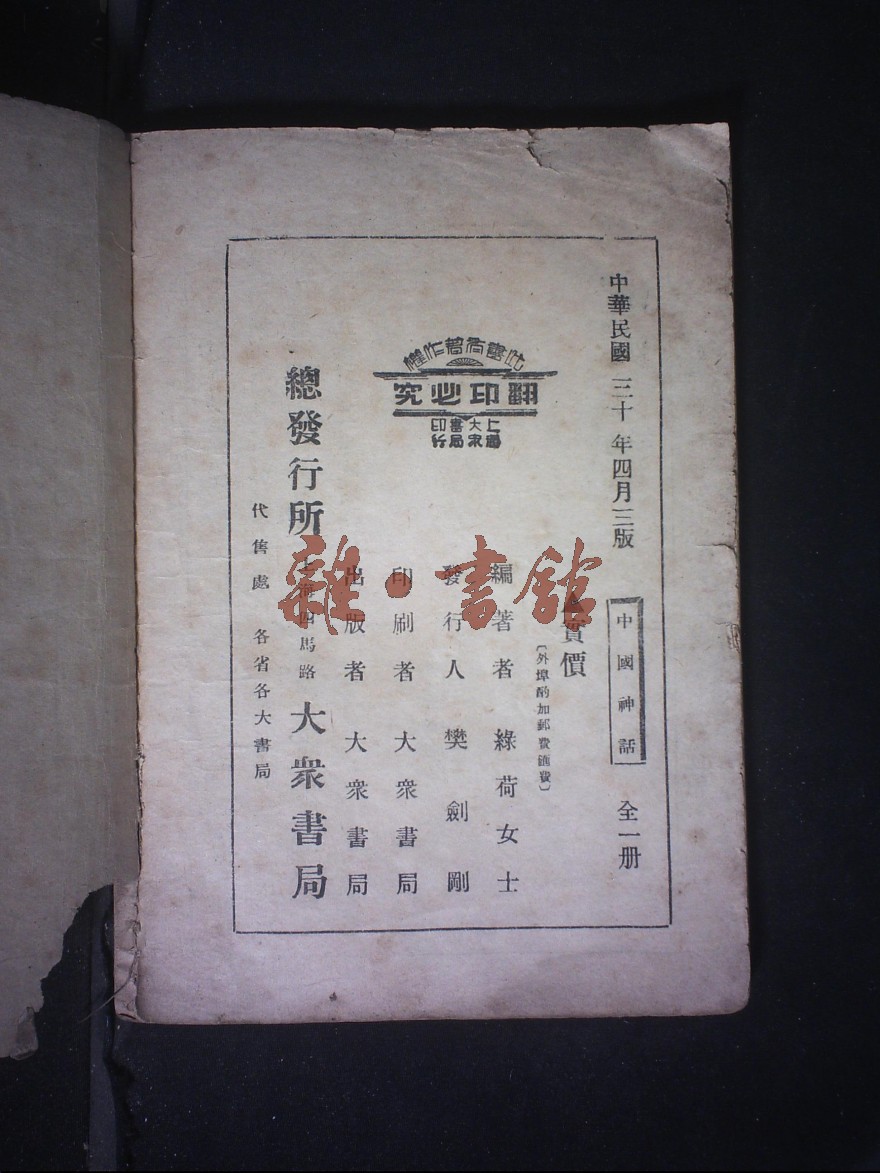 中華民國三十年四月三版
中國神話
全一册
▲實價
〔外埠酌加郵費匯費〕
編著者 綠荷女士
發行人 樊劍剛
印刷者 大衆書局
出版者 大衆書局
總發行所 上海四馬路 大衆書局
代售處 各省各大書局
此書有著作權
翻印必究
上海
大衆
書局
印行
雜·書館